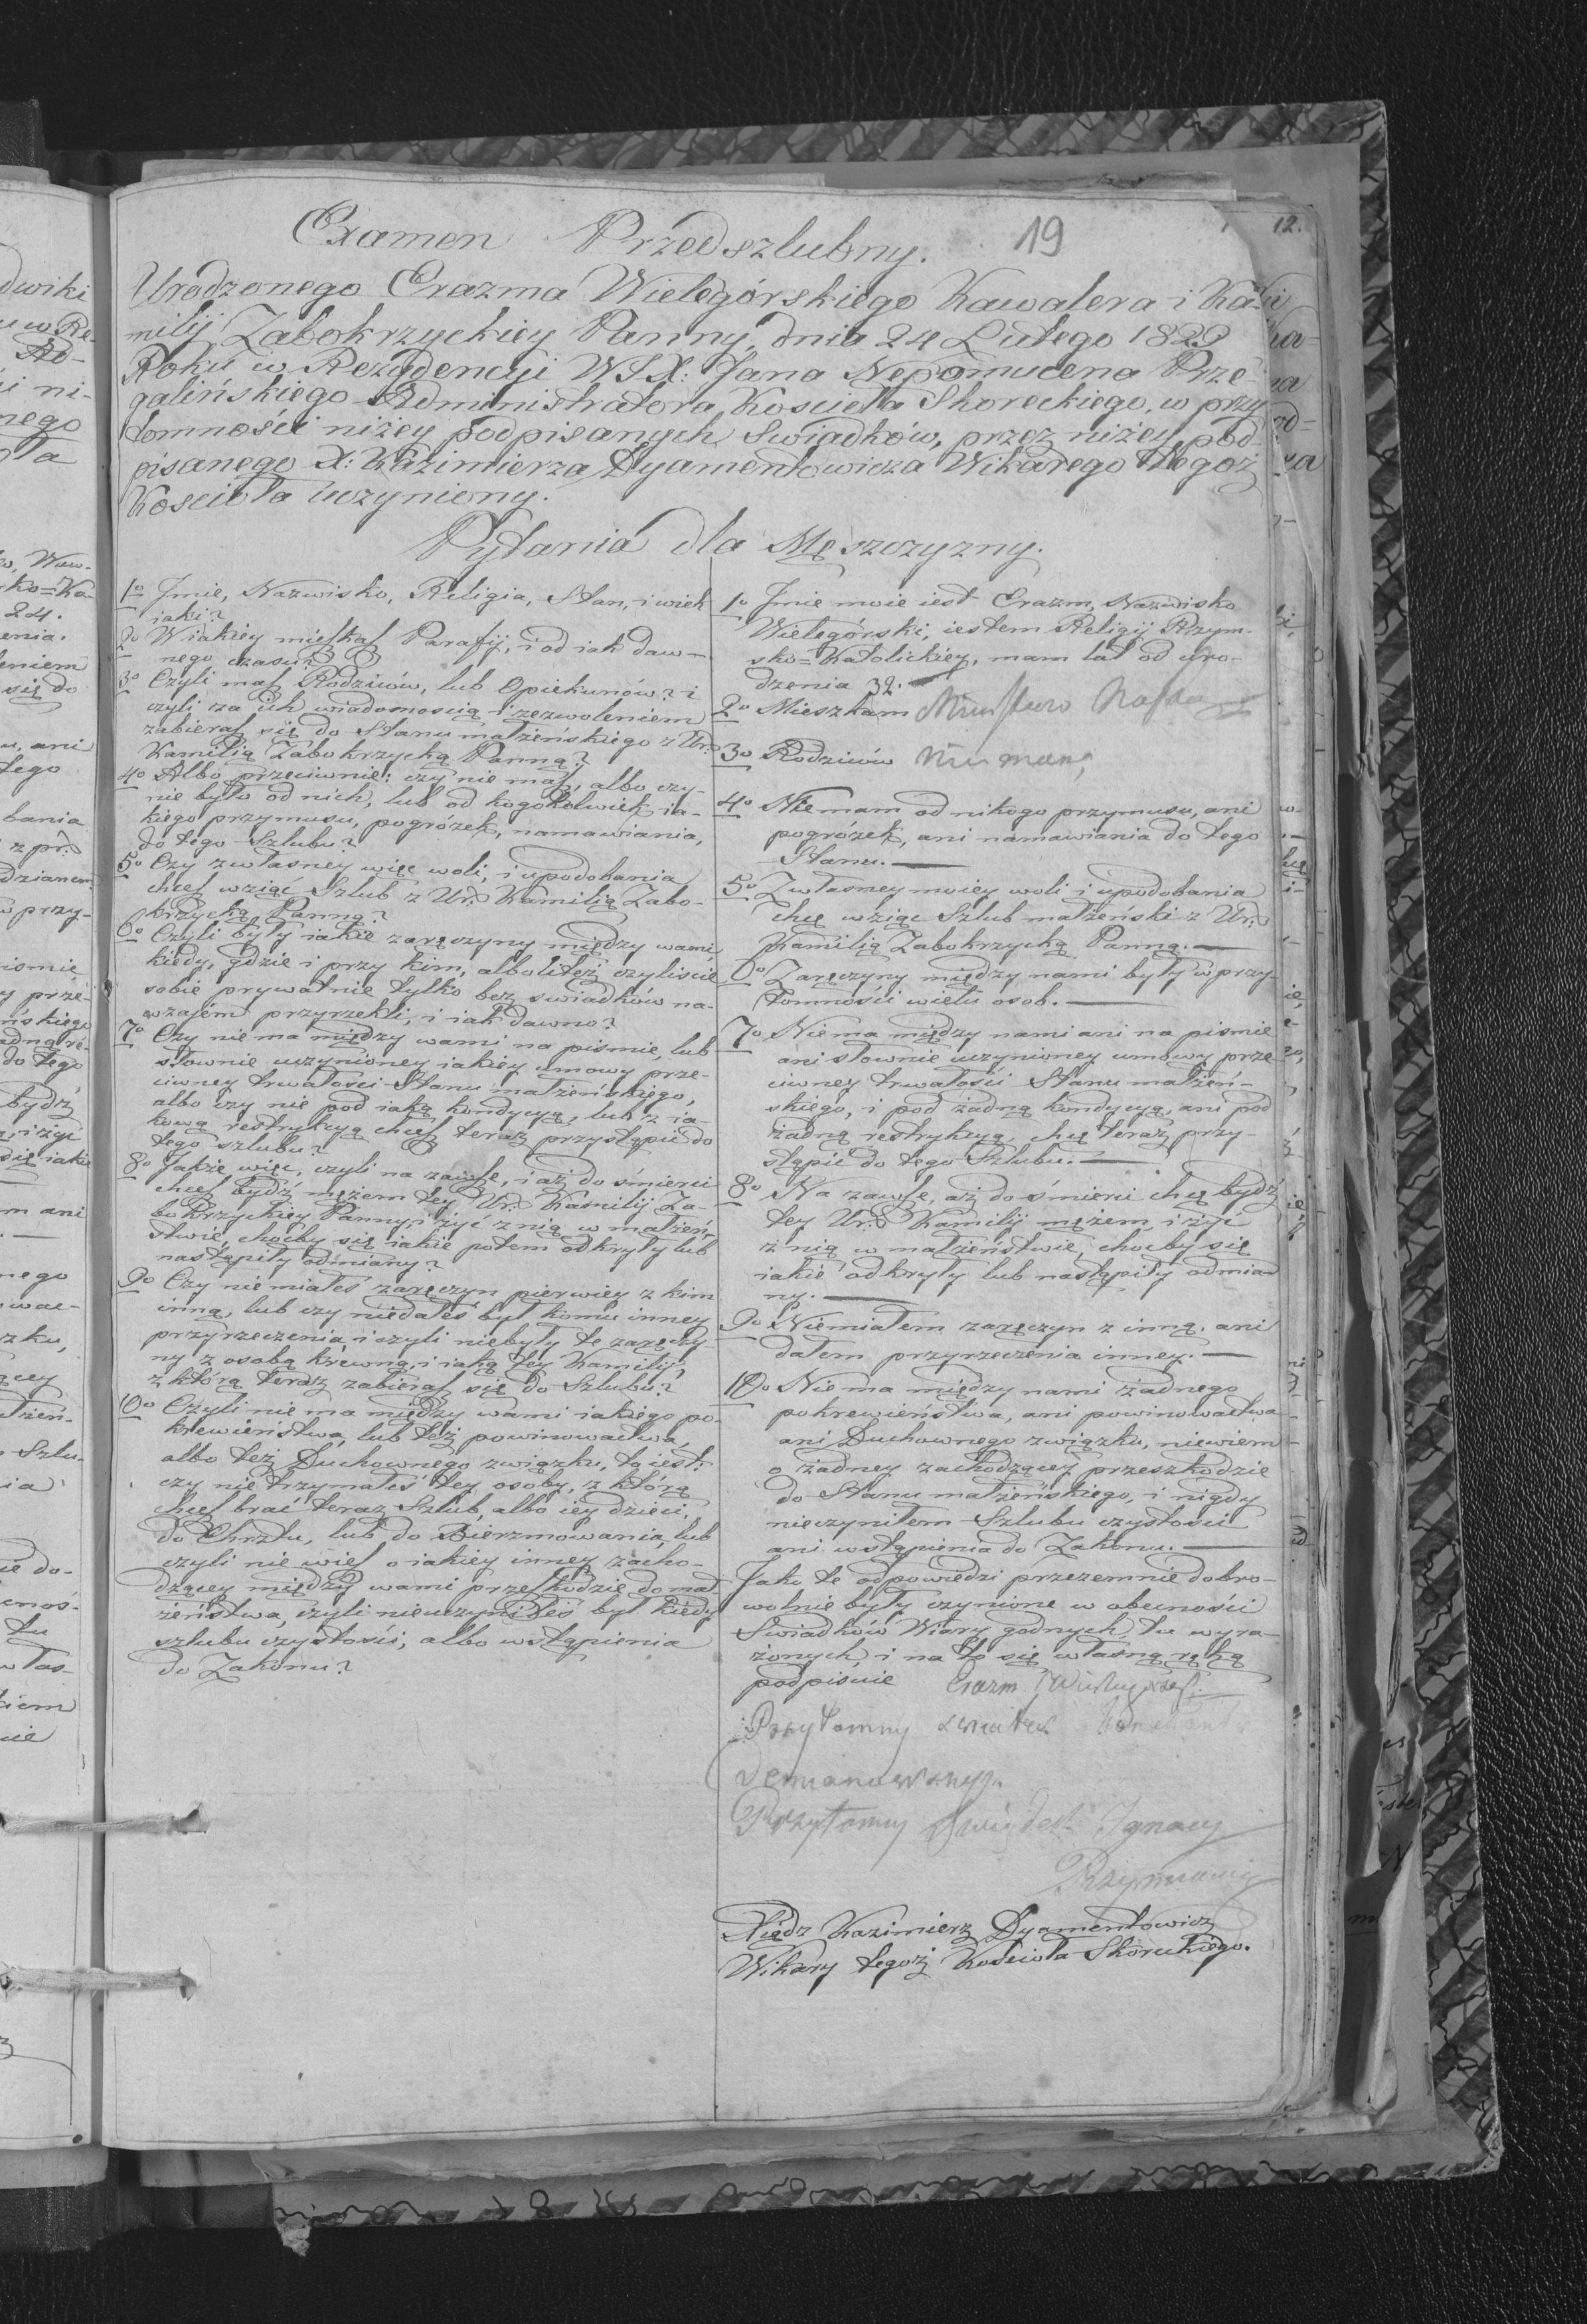 Examen Przedszlubny.
19
12.
Urodzonego Erazma Wielegórskiego Kawalera i Ka-
milij Zabokrzyckiey Panny, dnia 24 Lutego 1829
Roku w Rezydencyi WJX: Jana Nepomucena Prze-
galińskiego Administratora Koscioła Skoreckiego, w przy
tomności niżey podpisanych Swiadków, przez niżey pod-
pisanego X: Kazimierza Dyamentowicza Wikarego tegoż
Koscioła uczyniony.
Pytania dla Męszczyzny.
1o Jmie, Nazwisko, Religia, Stan, i wiek
iaki?
2o W iakiey mieſkaſ Parafij, i od iak daw-
nego czasu?
3o Czyli maſ Rodziców, lub Opiekunów? i
czyli za ich wiadomoscią i zezwoleniem
zabieraſ się do Stanu małżeńskiego z Ur:
Kamilią Zabokrzycką Panną?
4o Albo przeciwnie; czy nie maſ, albo czy-
nie było od nich, lub od kogokolwiek ia-
kiego przymusu, pogrózek, namawiania,
do tego Szlubu?
5o Czy z własney więc woli, i upodobania
chceſ wziąć Szlub z Ur: Kamilią Zabo-
krzycką Panną?
6o Czyli były iakie zaręczyny między wami,
kiedy, gdzie i przy kim, albo liteż czyliscie
sobie prywatnie tylko bez swiadków na-
wzajem przyrzekli, i iak dawno?
7o Czy nie ma między wami na pismie, lub
słownie uczynioney iakiey umowy prze-
ciwney trwałosci Stanu małżeńskiego,
albo czy nie pod iaką kondycyą, lub z ia-
kową restrykcyą chceſ teraz przystąpić do
tego szlubu?
8o Jakże więc, czyli na zawſe, i aż do śmierci
chceſ bydź mężem tey Ur: Kamilij Za-
bokrzyckiey Panny, i żyć z nią w małżeń-
stwie, choćby się iakie potem odkryły lub
nastąpiły odmiany?
9o Czy nie miałes zaręczyn pierwiey z kim
inną, lub czy niedałeś był komu inney
przyrzeczenia, i czyli niebyły te zaręczy-
ny z osobą krewną, i iaką tey Kamilij,
z którą teraz zabieraſ się do Szlubu?
10o Czyli nie ma między wami iakiego po-
krewieństwa, lub też powinowactwa,
albo też Duchownego związku, to iest:
czy nie trzymałeś tey osoby, z którą
chceſ brać teraz Szlub, albo iey dzieci,
do Chrztu, lub do Bierzmowania, lub
czyli nie wieſ o iakiey inney zacho-
dzącey między wami przeſkodzie do mał
żeństwa, czyli nieuczyniłeś był kiedy
szlubu czystości, albo wstąpienia
do Zakonu?
1o Jmie moie iest Erazm, Nazwisko
Wielegórski, iestem Religij Rzym-
sko=Katolickiey, mam lat od uro-
dzenia 32.
2o Mieszkam
3o Rodziców nie mam,
4o Nie mam od nikogo przymusu, ani
pogrózek, ani namawiania do tego
Stanu.
5o Z własney moiey woli i upodobania
chcę wziąc Szlub małżeński z Ur:
Kamilią Zabokrzycką Panną.
6o Zaręczyny między nami były w przy-
tomności wielu osob.
7o Nie ma między nami ani na pismie
ani słownie uczynioney umowy prze
ciwney trwałości Stanu małżeń-
skiego, i pod żadną kondycyą, ani pod
żadną restrykcyą, chcę teraz przy-
stąpić do tego Szlubu.
8o Na zawſe, aż do śmierci chcę bydź
tey Ur: Kamilij mężem, i żyć
z nią w małżeństwie, choćby się
iakie odkryły lub nastąpiły odmia-
ny.
9o Niemiałem zaręczyn z inną, ani
dałem przyrzeczenia inney.
10o Nie ma między nami żadnego
pokrewieństwa, ani powinowactwa
ani Duchownego związku, niewiem
o żadney zachodzącey przeszkodzie
do Stanu małżeńskiego, i nigdy
nieczyniłem Szlubu czystości
ani wstąpienia do Zakonu.
Jako te odpowiedzi przezemnie dobro-
wolnie były czynione w obecności
Swiadków Wiary godnych, tu wyra-
żonych, i na to się własną ręką
podpisuie Erazm
Przytomny
Przytomny Swiadek Ignacy
Xiądz Kazimierz Dyamentowicz
Wikary tegoż Kościoła Skoreckiego.